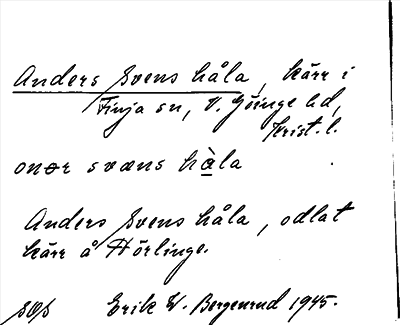 Anders Svens håla, kärr i
Finja sn, V. Göinge hd,
Krist. l.
onər svæns hàla
Anders Svens håla, odlat
kärr å Hörlinge.
Erik W. Bergenrud 1945.